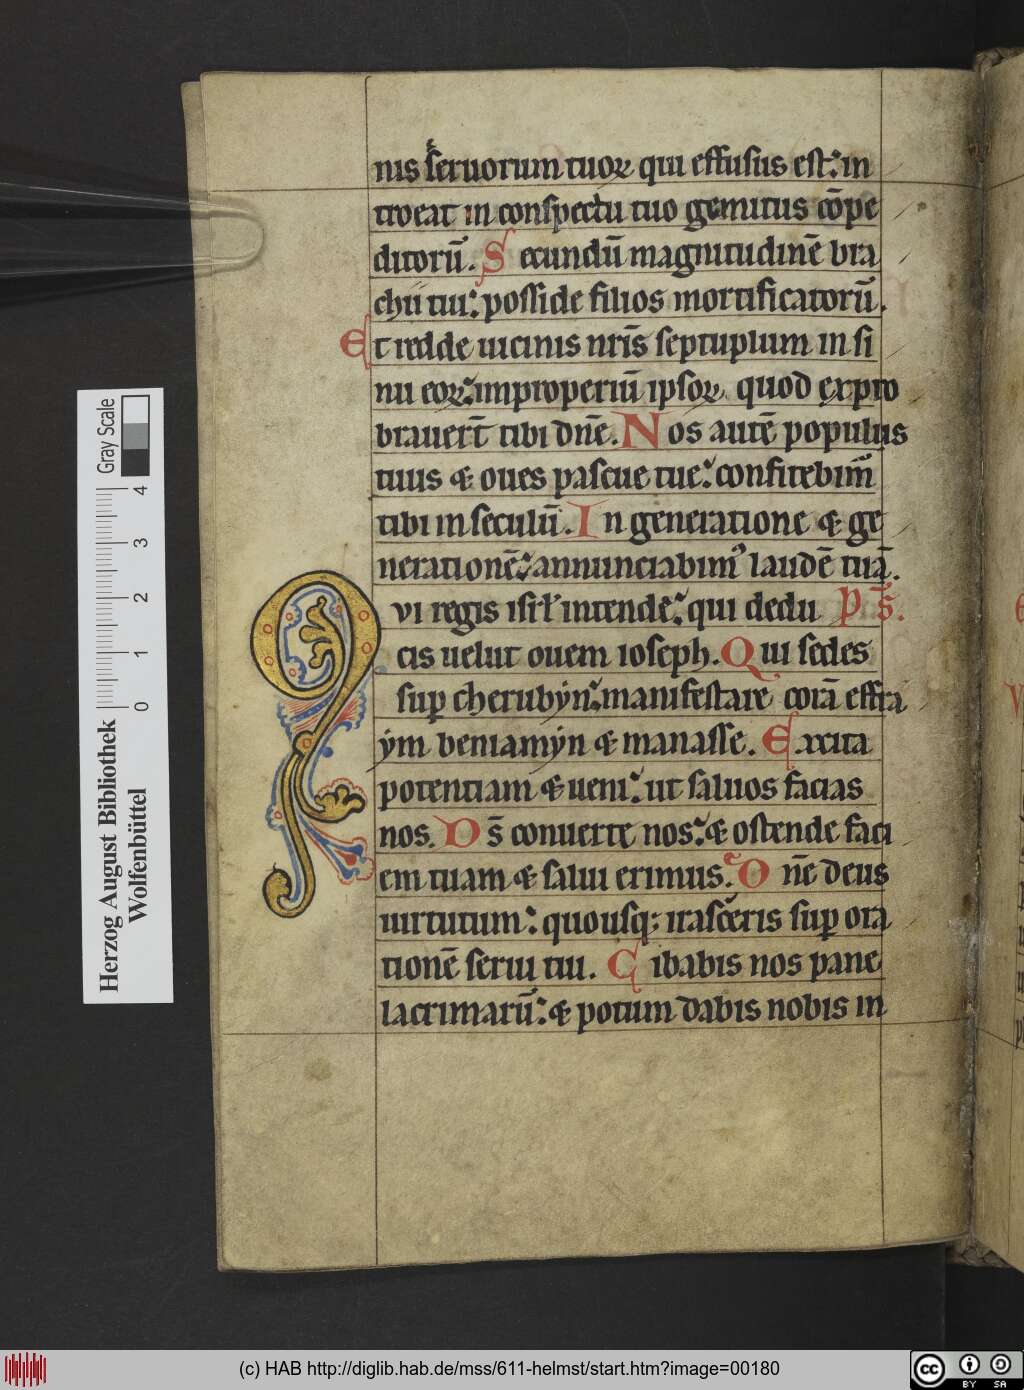 nis seruorum tuoꝝ qui effusus est: in
troeat in conspectu tuo gemitus cōpe
ditorū. Secundū magnitudinē bra
chii tui: posside filios mortificatorū.
Et redde uicinis nr̄is septuplum in si
nu eoꝝ: improperiū ipsoꝝ quod expro
brauert̄ tibi dn̄e. Nos autē populus
tuus ⁊ oues pascue tue: confitebim̄
tibi in seculū. In generatione ⁊ ge
nerationē: annunciabimꝰ laudē tuā.
Qvi regis isrł intende: qui dedu p̄s̄.
cis uelut ouem ioseph. Qui sedes
suꝑ cherubyn: manifestare corā effra
ym beniamyn ⁊ manasse. Excita
potentiam ⁊ ueni: ut saluos facias
nos. Ds̄ conuerte nos: ⁊ ostende faci
em tuam ⁊ salui erimus. Dn̄e deus
uirtutum: quousqꝫ irasceris suꝑ ora
tionē serui tui. Cibabis nos pane
lacrimarū: ⁊ potum dabis nobis in
Herzog August Bibliothek
Wolfenbüttel
0 1 2 3 4
Gray Scale
(c) HAB http://diglib.hab.de/mss/611-helmst/start.htm?image=00180
cc BY SA